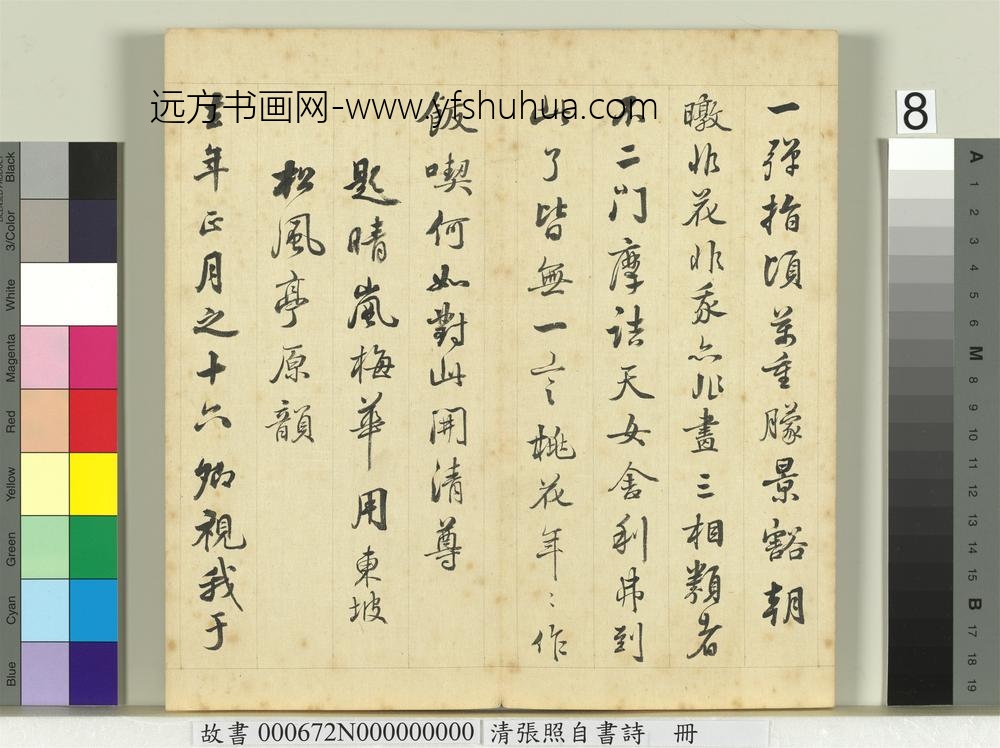 远方书画网-www.yfshuhua.com
一彈指頃萬重朦景豁朝
暾非花非亦非畫三相類者
不二門摩詰天女舍利弗到
此了皆無一言桃花年〻作
飯喫何如對此開清尊
題晴嵐梅華用東坡
松風亭原韻
年正月之十六卿視我于
8
A
1
2
3
4
5
6
M
8
9
10
11
12
13
14
15
B
17
18
19
Black
3/Color
White
Magenta
Red
Yellow
Green
Cyan
Blue
故書 000672N000000000 清張照自書詩 冊